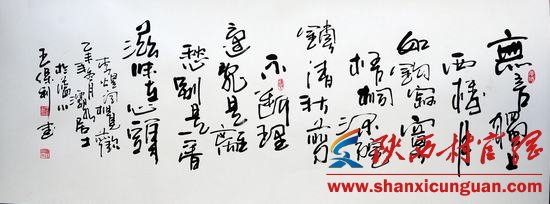 無言獨上
西樓月
如鈎寂寞
梧桐深院
鎖清秋剪
不斷理
還亂是離
愁别是一番
滋味在心頭
李煜词相見歡
乙未年 月 居士
王保利 書
陕西村官網
www.shanxicunguan.com